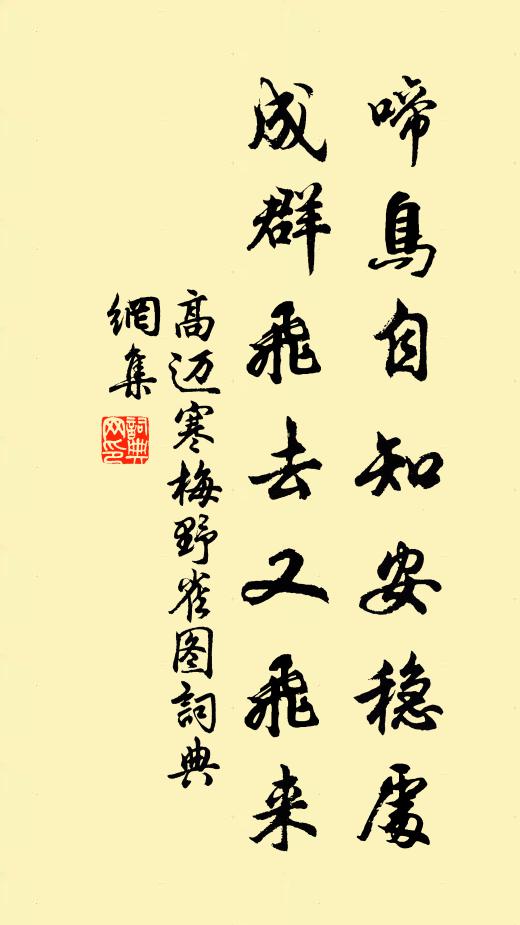 啼鳥自知安稳處
成群飛去又飛来
高迈寒梅野雀图詞典
網集
詞典
网印